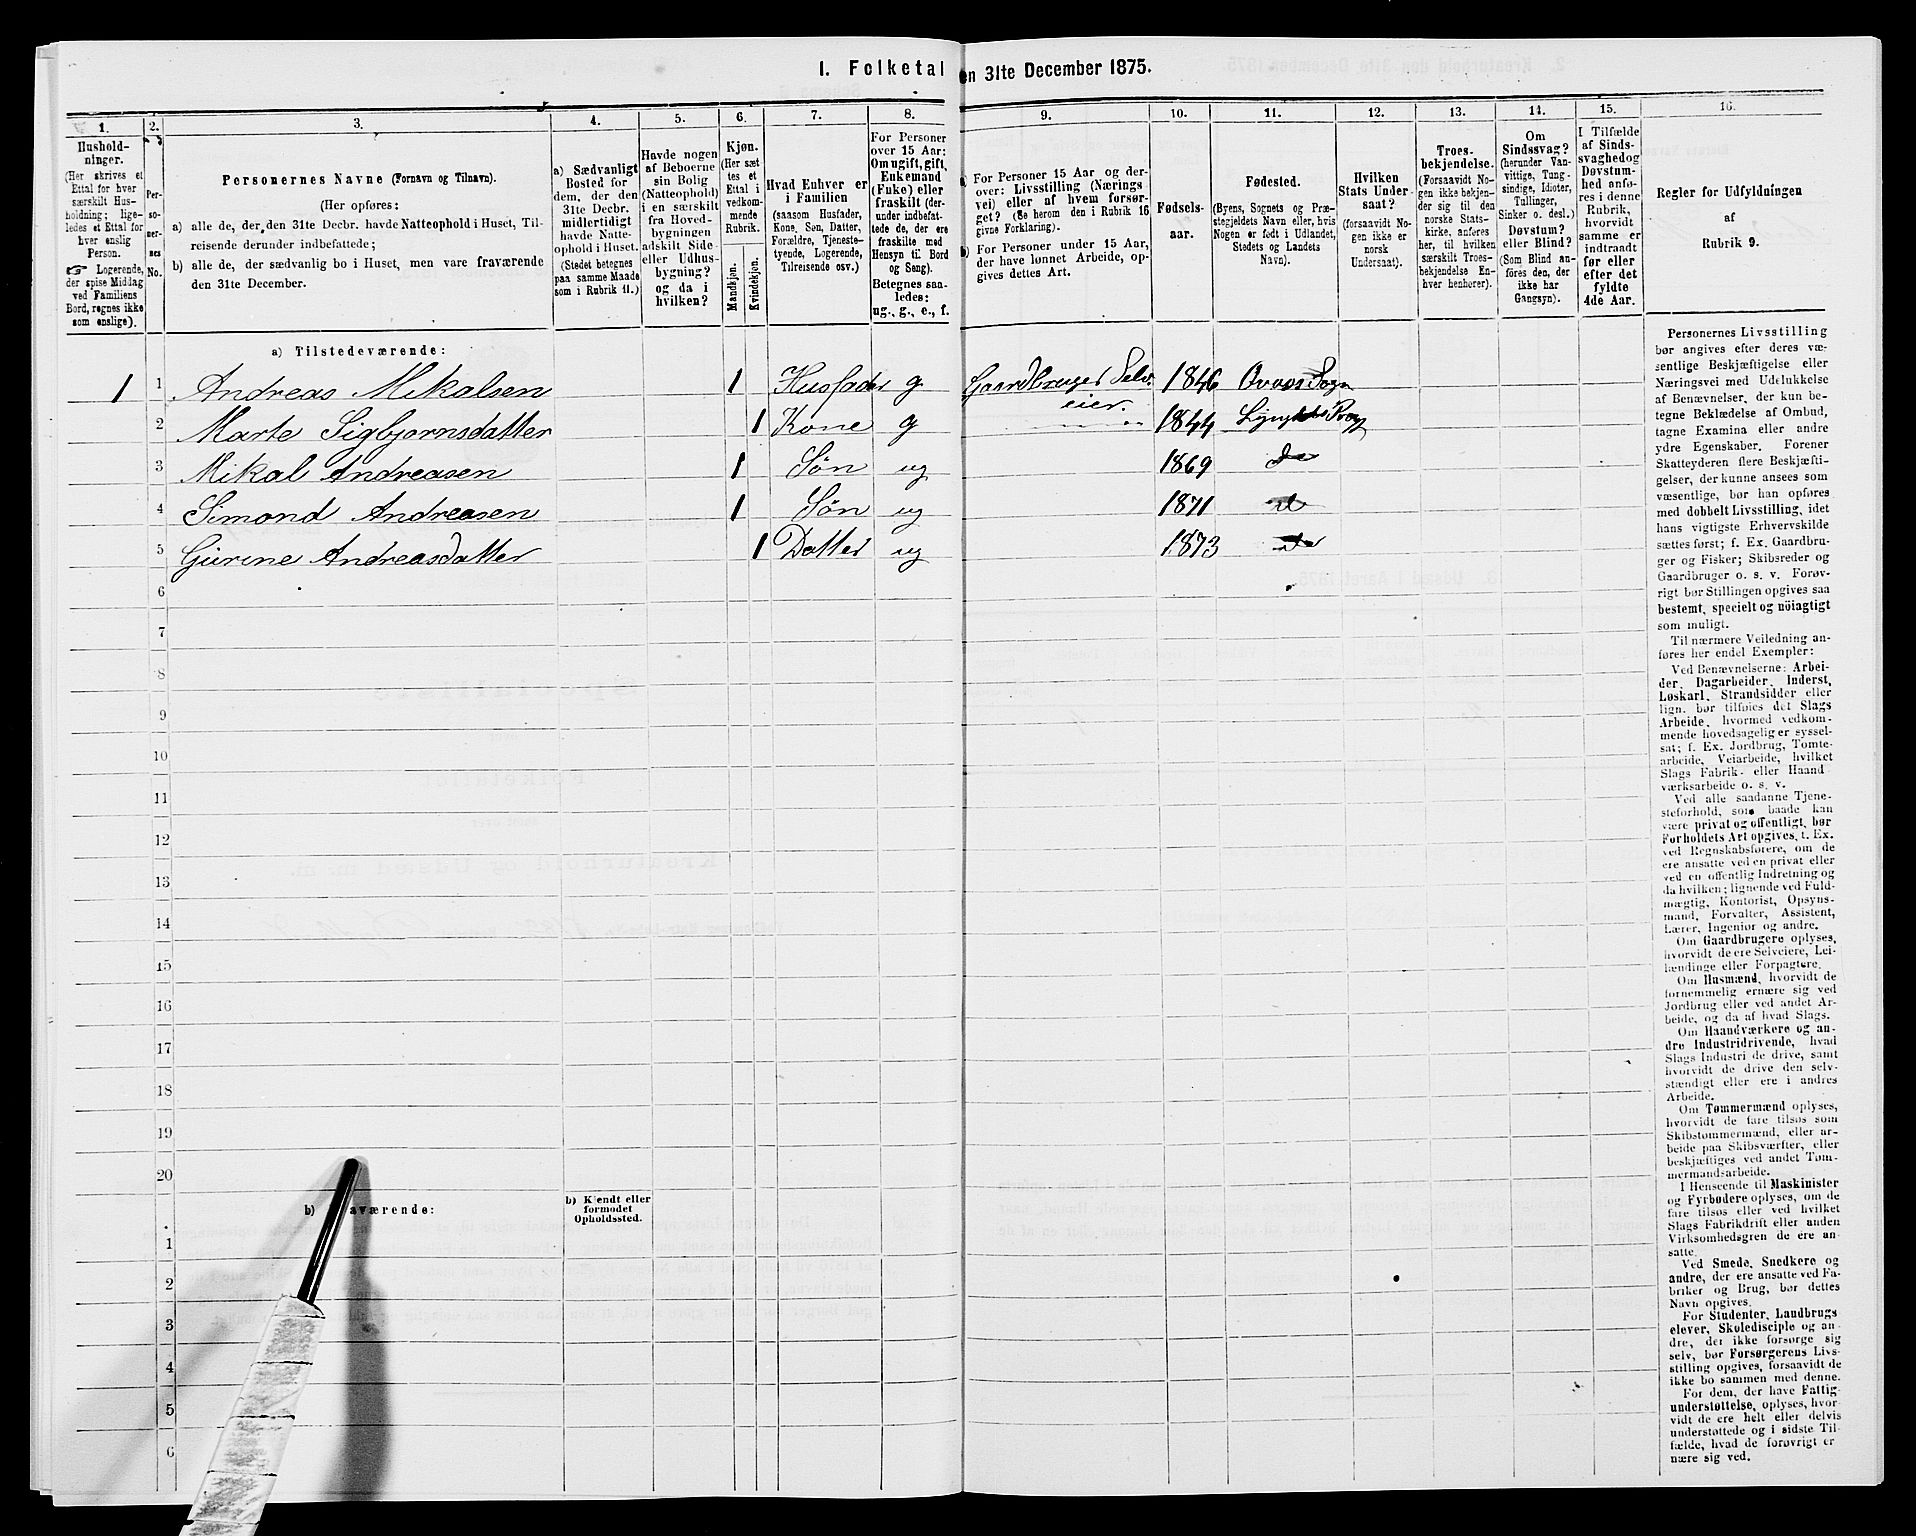 1. Folketal en 31te December 1875.
1. 2. 3. 4. 5. 6. 7. 8. 9. 10. 11. 12. 13. 14. 15. 16.
Hushold-
ninger.
(Her skrives et
Ettal for hver
særskilt Hus-
holdning; lige-
ledes et Ettal for
hver enslig
Person.
☞ Logerende,
der spise Middag
ved Familiens
Bord, regnes ikke
som enslige).
Per-
so-
ner-
nes
No.
Personernes Navne (Fornavn og Tilnavn).
(Her opføres:
a) alle de, der den 31te Decbr. havde Natteophold i Huset, Til-
reisende derunder indbefattede;
b) alle de, der sædvanlig bo i Huset, men vare fraværende
den 31te December.
a) Sædvanligt
Bosted for
dem, der den
31te Decbr.
midlertidigt
havde Natte-
ophold i Huset.
(Stedet betegnes
paa samme Maade
som i Rubrik 11.)
Havde nogen
af Beboerne
sin Bolig
(Natteophold)
i en særskilt
fra Hoved-
bygningen
adskilt Side-
eller Udhus-
bygning?
og da i
hvilken?
Kjøn.
(Her sæt
tes et
Ettal i
vedkom-
mende
Rubrik.
Mandkjøn.
Kvindekjøn.
Hvad Enhver er
i Familien
(saasom Husfader,
Kone, Søn, Datter,
Forældre, Tjeneste-
tyende, Logerende,
Tilreisende osv.)
For Personer
over 15 Aar:
Om ugift, gift,
Enkemand
(Enke) eller
fraskilt (der-
under indbefat-
tede de, der ere
fraskilte med
Hensyn til Bord
og Seng).
Betegnes saa-
ledes:
ug., g., e., f.
a) For Personer 15 Aar og der-
over: Livsstilling (Nærings
vei) eller af hvem forsør-
get? (Se herom den i Rubrik 16
givne Forklaring).
b) For Personer under 15 Aar,
der have lønnet Arbeide, op-
gives dettes Art.
Fødsels-
aar.
Fødested.
(Byens, Sognets og Præ-
stegjeldets Navn eller, hvis
Nogen er født i Udlandet,
Stedets og Landets
Navn).
Hvilken
Stats Under-
saat?
(forsaavidt No-
gen ikke er
norsk
Undersaat).
Troes-
bekjendelse.
(Forsaavidt No-
gen ikke bekjen-
der sig til den
norske Stats-
kirke, anføres
her, til hvilken
særskilt Troes-
bekjendelse En-
hver henhører).
Om
Sindssvag?
(herunder Van-
vittige, Tung-
sindige, Idioter,
Tullinger,
Sinker o. desl.)
Døvstum?
eller Blind?
(Som Blind an-
føres den, der
ikke har
Gangsyn).
I Tilfælde
af Sinds-
svaghedog
Døvstum-
hed anfø-
res i denne
Rubrik,
hvorvidt
samme er
indtraadt
før eller
efter det
fyldte
4de Aar.
Regler for Udfyldningen
af
Rubrik 9.
a) Tilstedeværende:
1 1 Andreas Mikalsen 1 Husfader g Gaardbruger Selv- 1846 Sogn
eier.
2 Marte Sigbjørnsdatter 1 Kone g 1844
3 Mikal Andreasen 1 Søn ug 1869 do
4 Simond Andreasen 1 Søn ug 1871 do
5 Gurine Andreasdatter 1 Datter ug 1873 do
6
7
8
9
10
11
12
13
14
15
16
17
18
19
20
b) aværende:
b) Kjendt eller
formodet
Opholdssted.
1
2
3
4
5
6
Personernes Livsstilling
bør angives efter deres væ-
sentlige Beskjæftigelse eller
Næringsvei med Udelukkelse
af Benævnelser, der kun be-
tegne Beklædelse af Ombud,
tagne Examina eller andre
ydre Egenskaber. Forener
Skatteyderen flere Beskjæfti-
gelser, der kunne ansees som
væsentlige, bør han opføres
med dobbelt Livsstilling, idet
hans vigtigste Erhvervskilde
sættes først; f. Ex. Gaardbru-
ger og Fisker; Skibsreder og
Gaardbruger o. s. v. Forøv-
rigt bør Stillingen opgives saa
bestemt, specielt og nöiagtigt
som muligt.
Til nærmere Veiledning an-
føres her endel Exempler:
Ved Benævnelserne: Arbei-
der, Dagarbeider, Inderst,
Løskarl, Strandsidder eller
lign. bør tilføies det Slags
Arbeide, hvormed vedkom-
mende hovedsagelig er syssel-
sat; f. Ex. Jordbrug, Tomte-
arbeide, Veiarbeide, hvilket
Slags Fabrik- eller Haand
værksarbeide o. s. v.
Ved alle saadanne Tjene-
steforhold, som baade kan
være privat og offentligt, bør
Forholdets Art opgives, t. Ex.
ved Regnskabsførere, om de
ere ansatte ved en privat eller
ved en offentlig Indretning og
da hvilken; lignende ved Fuld-
mægtig, Kontorist, Opsyns-
mand, Forvalter, Assistent,
Lærer, Ingeniør og andre.
Om Gaardbrugere oplyses,
hvorvidt de ere Selveiere, Lei-
lændinge eller Forpagtere.
Om Husmænd, hvorvidt de
fornemmelig ernære sig ved
Jordbrug eller ved andet Ar-
beide, og da af hvad Slags.
Om Haandværkere og an-
dre Industridrivende, hvad
Slags Industri de drive, samt
hvorvidt de drive den selv-
stændigt eller ere i andres
Arbeide.
Om Tømmermænd oplyses,
hvorvidt de fare tilsøs som
Skibstømmermænd, eller ar-
beide paa Skibsværfter, eller
beskjæftiges ved andet Tøm-
mermandsarbeide.
I Henseende til Maskinister
og Fyrbødere oplyses, om de
fare tilsøs eller ved hvilket
Slags Fabrikdrift eller anden
Virksomhedsgren de ere an-
satte.
Ved Smede, Snedkere og
andre, der ere ansatte ved Fa-
briker og Brug, bør dettes
Navn opgives.
For Studenter, Landbrugs
elever, Skoledisciple og an-
dre, det ikke forsørge sig
selv, bør Forsørgerens Livs-
stilling opgives, forsaavidt de
ikke bo sammen med denne.
For dem, der have Fattig-
understøttelse, oplyses, hvor-
vidt de ere helt eller delvis
understøttede og i sidste Til-
fælde, hvad de forøvrigt er
nære sig ved.